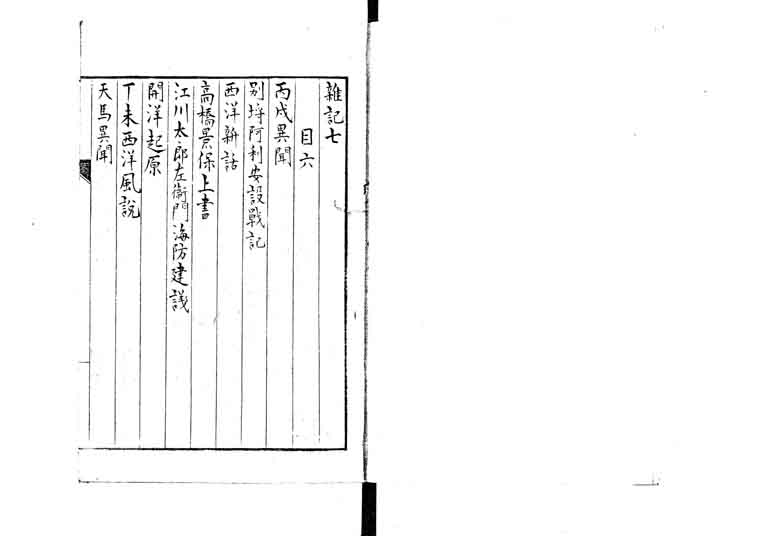 雜記七
目六
丙戌異聞
別埒阿利安設戰記
西洋新話
高橋景保上書
江川太郎左衛門海防建議
開洋起原
丁未西洋風說
天馬異聞